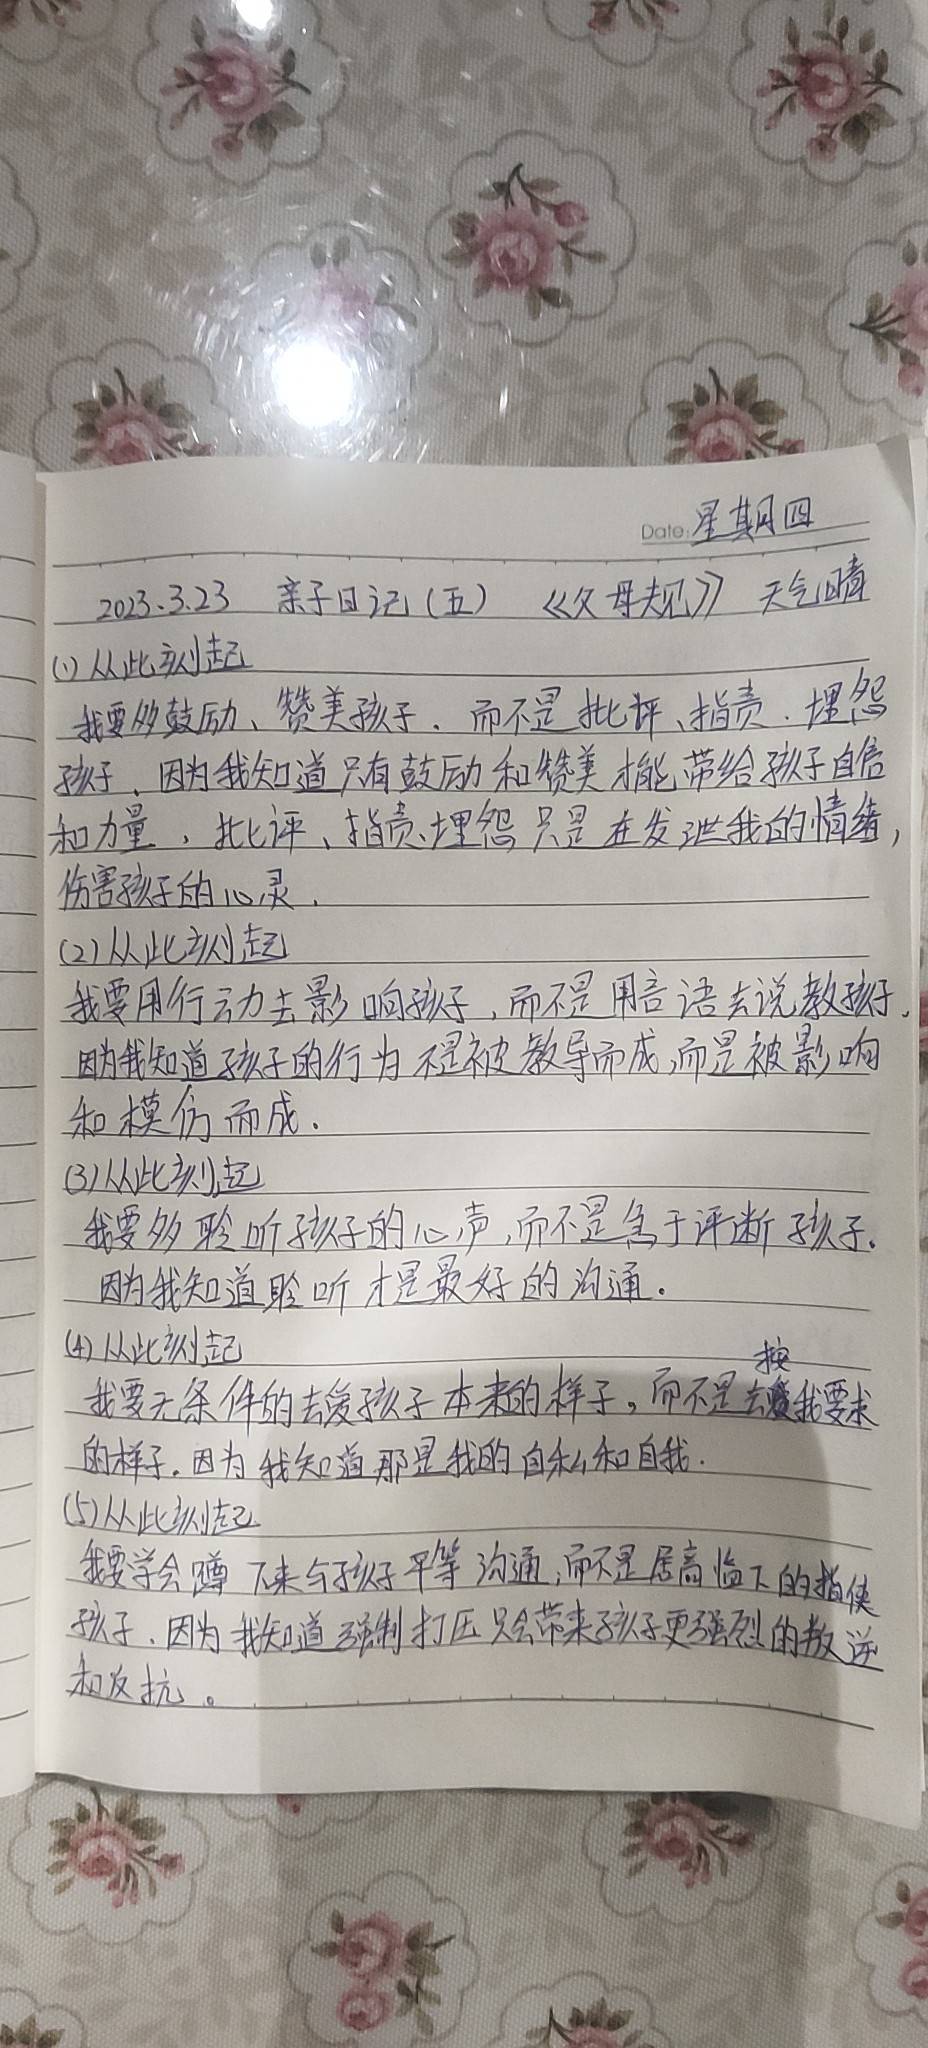 Date: 星期四
2023.3.23 亲子日记(五) 《父母规》 天气晴
(1)从此刻起
我要多鼓励、赞美孩子.而不是批评、指责.埋怨
孩子.因为我知道只有鼓励和赞美才能带给孩子自信
和力量,批评、指责、埋怨只是在发泄我的情绪,
伤害孩子的心灵.
(2)从此刻起
我要用行动去影响孩子,而不是用言语去说教孩子.
因为我知道孩子的行为不是被教导而成,而是被影响
和模仿而成.
(3)从此刻起
我要多聆听孩子的心声,而不是急于评断孩子.
因为我知道聆听才是最好的沟通.
(4)从此刻起
我要无条件的去爱孩子本来的样子,而不是去按我要求
的样子.因为我知道那是我的自私和自我.
(5)从此刻起
我要学会蹲下来与孩子平等沟通,而不是居高临下的指使
孩子.因为我知道强制打压只会带来孩子更强烈的叛逆
和反抗。